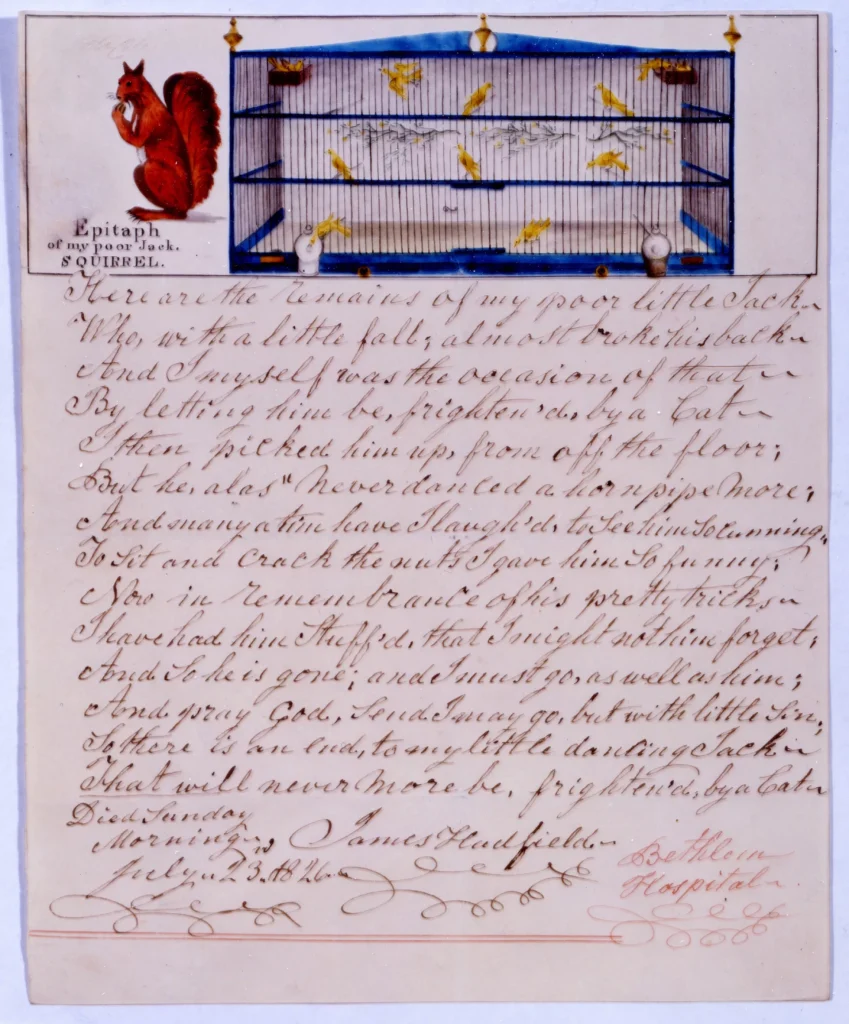 Epitaph
of my poor Jack.
SQUIRREL.
Here are the remains of my poor little Jack
Who, with a little fall; almost broke his back
And I myself was the occasion of that
By letting him be, frighten'd, by a Cat
I then picked him up, from off the floor;
But he, alas" Never danced a hornpipe More;
And many a tim have I laugh'd, to See him So cunning,
To Sit and crack the nuts I gave him So funny;
Now in remembrance of his pretty tricks
I have had him Stuff'd, that I might not him forget;
And So he is gone; and I must go, as well as him;
And pray God, Send I may go, but with little Sin;
So there is an end, to my little dancing Jack
That will never More be, frighten'd, by a Cat
Died Sunday
Morning,, James Hadfield
July 23. 1826
Bethlem
Hospital